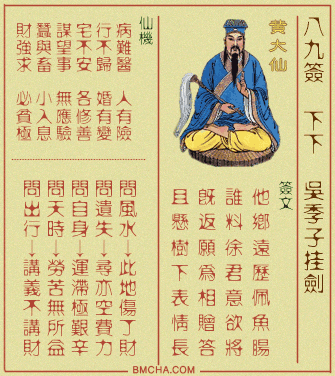 八九簽 下下 吳季子挂劍
黃大仙
簽文
他鄉遠歷佩魚腸
誰料徐君意欲將
既返願爲相贈答
且懸樹下表情長
仙機
病難醫 人有險
行不歸 婚有變
宅不安 各修善
謀望事 無應驗
蠶與畜 小入息
財強求 必貧極
問風水→此地傷了財
問遺失→尋亦空費力
問自身→運滯極艱辛
問天時→勞苦無所益
問出行→講義不講財
BMCHA.COM